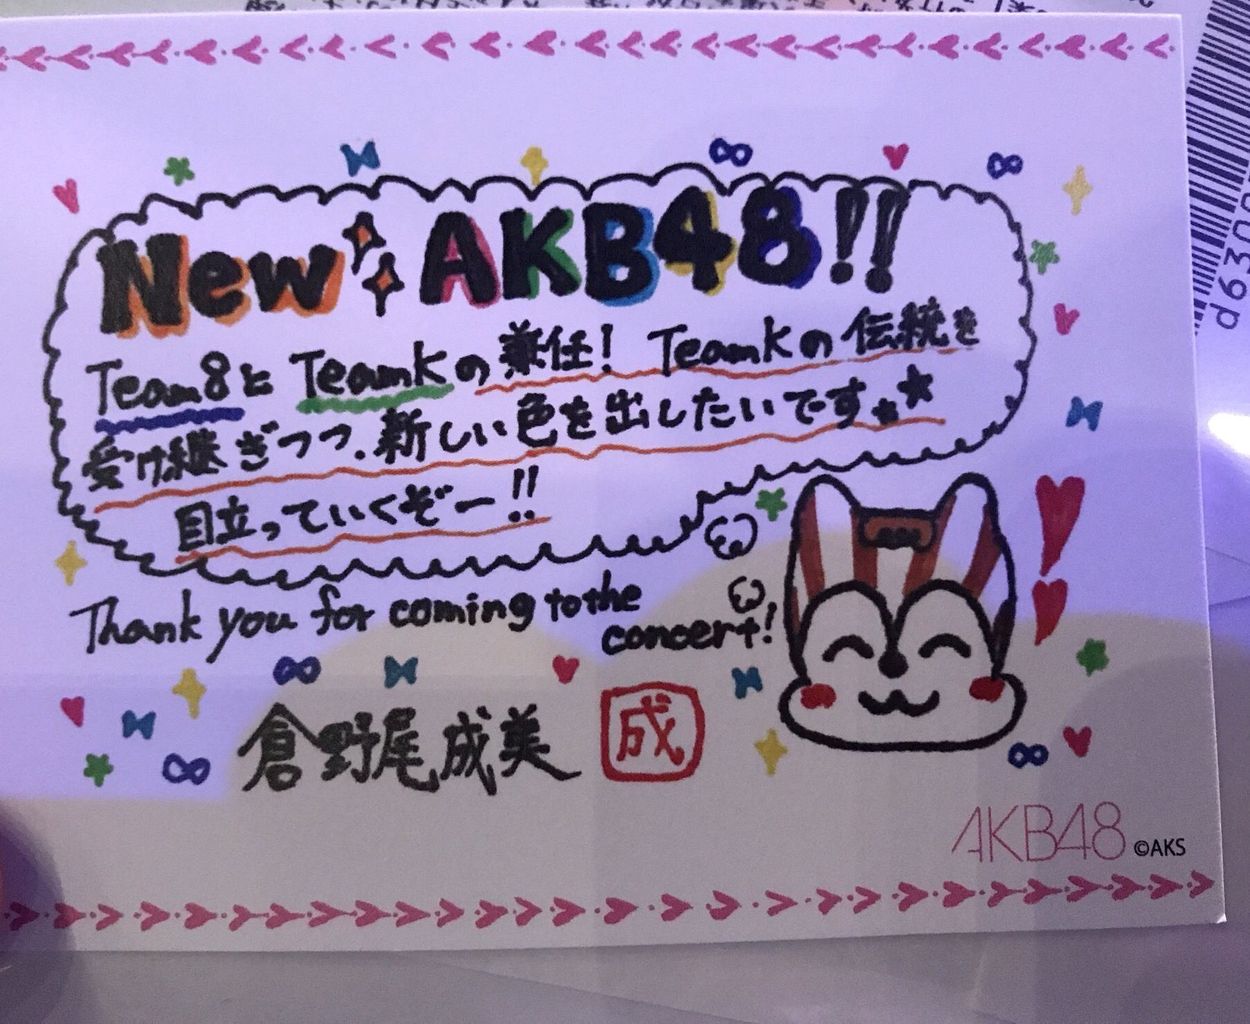 New AKB48!!
Team8と TeamKの兼任! TeamKの伝統を
受け継ぎつつ、新しい色を出したいです。★
目立っていくぞー!!
Thank you for coming to the
concert!
倉野尾成美 成
AKB48 ©AKS